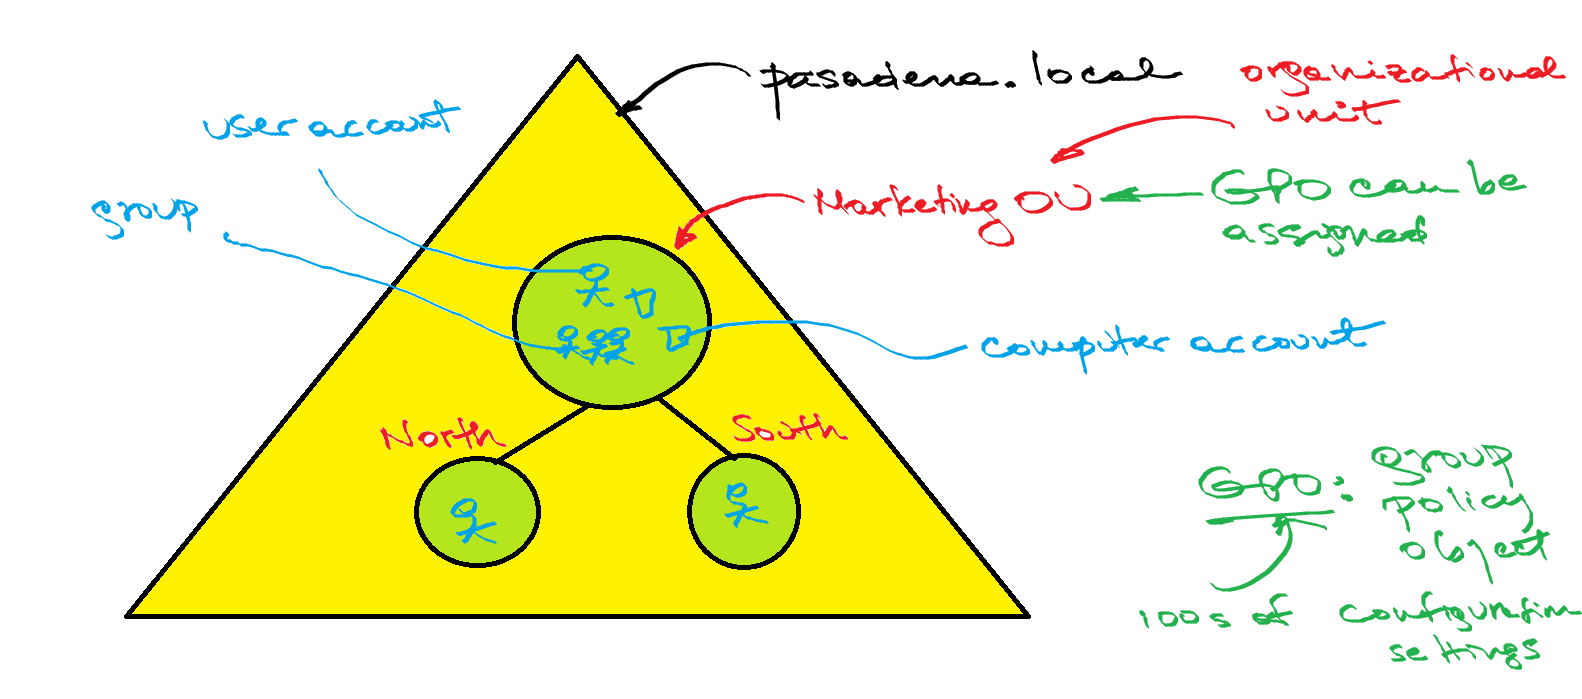 pasadena.local
organizational
unit
user account
Marketing OU
GPO can be
assigned
group
computer account
North
South
GPO: group
policy
object
100s of configuration
settings